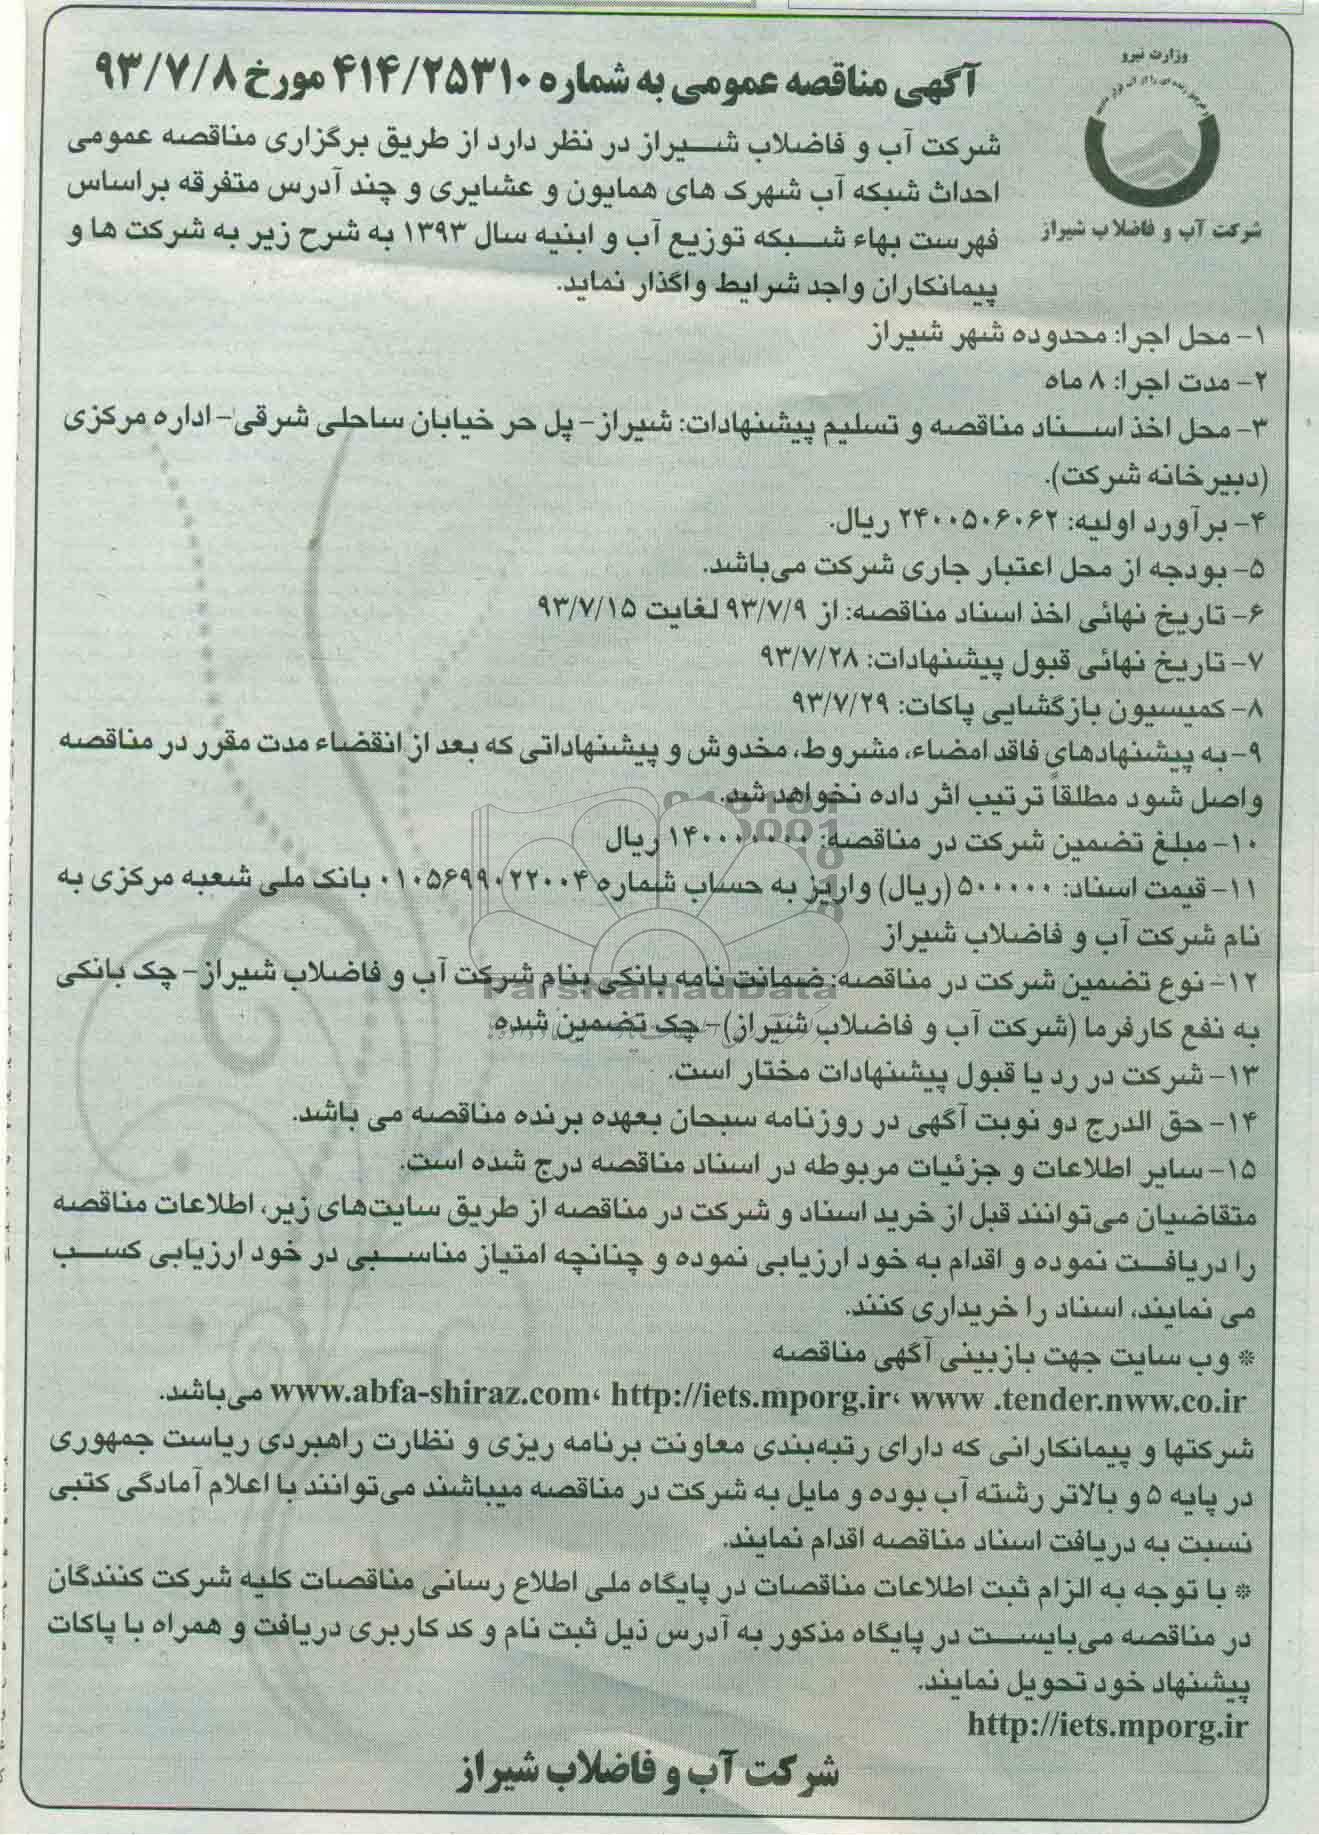 وزارت نیرو
شرکت آب و فاضلاب شیراز
آگهی مناقصه عمومی به شماره ۴۱۴/۲۵۳۱۰ مورخ ۹۳/۷/۸
شرکت آب و فاضلاب شیراز در نظر دارد از طریق برگزاری مناقصه عمومی
احداث شبکه آب شهرک های همایون و عشایری و چند آدرس متفرقه براساس
فهرست بهاء شبکه توزیع آب و ابنیه سال ۱۳۹۳ به شرح زیر به شرکت ها و
پیمانکاران واجد شرایط واگذار نماید.
۱- محل اجرا: محدوده شهر شیراز
۲- مدت اجرا: ۸ ماه
۳- محل اخذ اسناد مناقصه و تسلیم پیشنهادات: شیراز- پل حر خیابان ساحلی شرقی- اداره مرکزی
(دبیرخانه شرکت).
۴- برآورد اولیه: ۲۴۰۰۵۰۶۰۶۲ ریال.
۵- بودجه از محل اعتبار جاری شرکت می‌باشد.
۶- تاریخ نهائی اخذ اسناد مناقصه: از ۹۳/۷/۹ لغایت ۹۳/۷/۱۵
۷- تاریخ نهائی قبول پیشنهادات: ۹۳/۷/۲۸
۸- کمیسیون بازگشایی پاکات: ۹۳/۷/۲۹
۹- به پیشنهادهای فاقد امضاء، مشروط، مخدوش و پیشنهاداتی که بعد از انقضاء مدت مقرر در مناقصه
واصل شود مطلقاً ترتیب اثر داده نخواهد شد.
۱۰- مبلغ تضمین شرکت در مناقصه: ۱۴۰۰۰۰۰۰۰ ریال
۱۱- قیمت اسناد: ۵۰۰۰۰۰ (ریال) واریز به حساب شماره ۰۱۰۵۶۹۹۰۲۲۰۰۴ بانک ملی شعبه مرکزی به
نام شرکت آب و فاضلاب شیراز
۱۲- نوع تضمین شرکت در مناقصه: ضمانت نامه بانکی بنام شرکت آب و فاضلاب شیراز- چک بانکی
به نفع کارفرما (شرکت آب و فاضلاب شیراز)- چک تضمین شده
ParsNamadData
۱۳- شرکت در رد یا قبول پیشنهادات مختار است.
۱۴- حق الدرج دو نوبت آگهی در روزنامه سبحان بعهده برنده مناقصه می باشد.
۱۵- سایر اطلاعات و جزئیات مربوطه در اسناد مناقصه درج شده است.
متقاضیان می‌توانند قبل از خرید اسناد و شرکت در مناقصه از طریق سایت‌های زیر، اطلاعات مناقصه
را دریافت نموده و اقدام به خود ارزیابی نموده و چنانچه امتیاز مناسبی در خود ارزیابی کسب
می نمایند، اسناد را خریداری کنند.
* وب سایت جهت بازبینی آگهی مناقصه
www.abfa-shiraz.com، http://iets.mporg.ir، www .tender.nww.co.ir می‌باشد.
شرکتها و پیمانکارانی که دارای رتبه‌بندی معاونت برنامه ریزی و نظارت راهبردی ریاست جمهوری
در پایه ۵ و بالاتر رشته آب بوده و مایل به شرکت در مناقصه میباشند می‌توانند با اعلام آمادگی کتبی
نسبت به دریافت اسناد مناقصه اقدام نمایند.
* با توجه به الزام ثبت اطلاعات مناقصات در پایگاه ملی اطلاع رسانی مناقصات کلیه شرکت کنندگان
در مناقصه می‌بایست در پایگاه مذکور به آدرس ذیل ثبت نام و کد کاربری دریافت و همراه با پاکات
پیشنهاد خود تحویل نمایند.
http://iets.mporg.ir
شرکت آب و فاضلاب شیراز